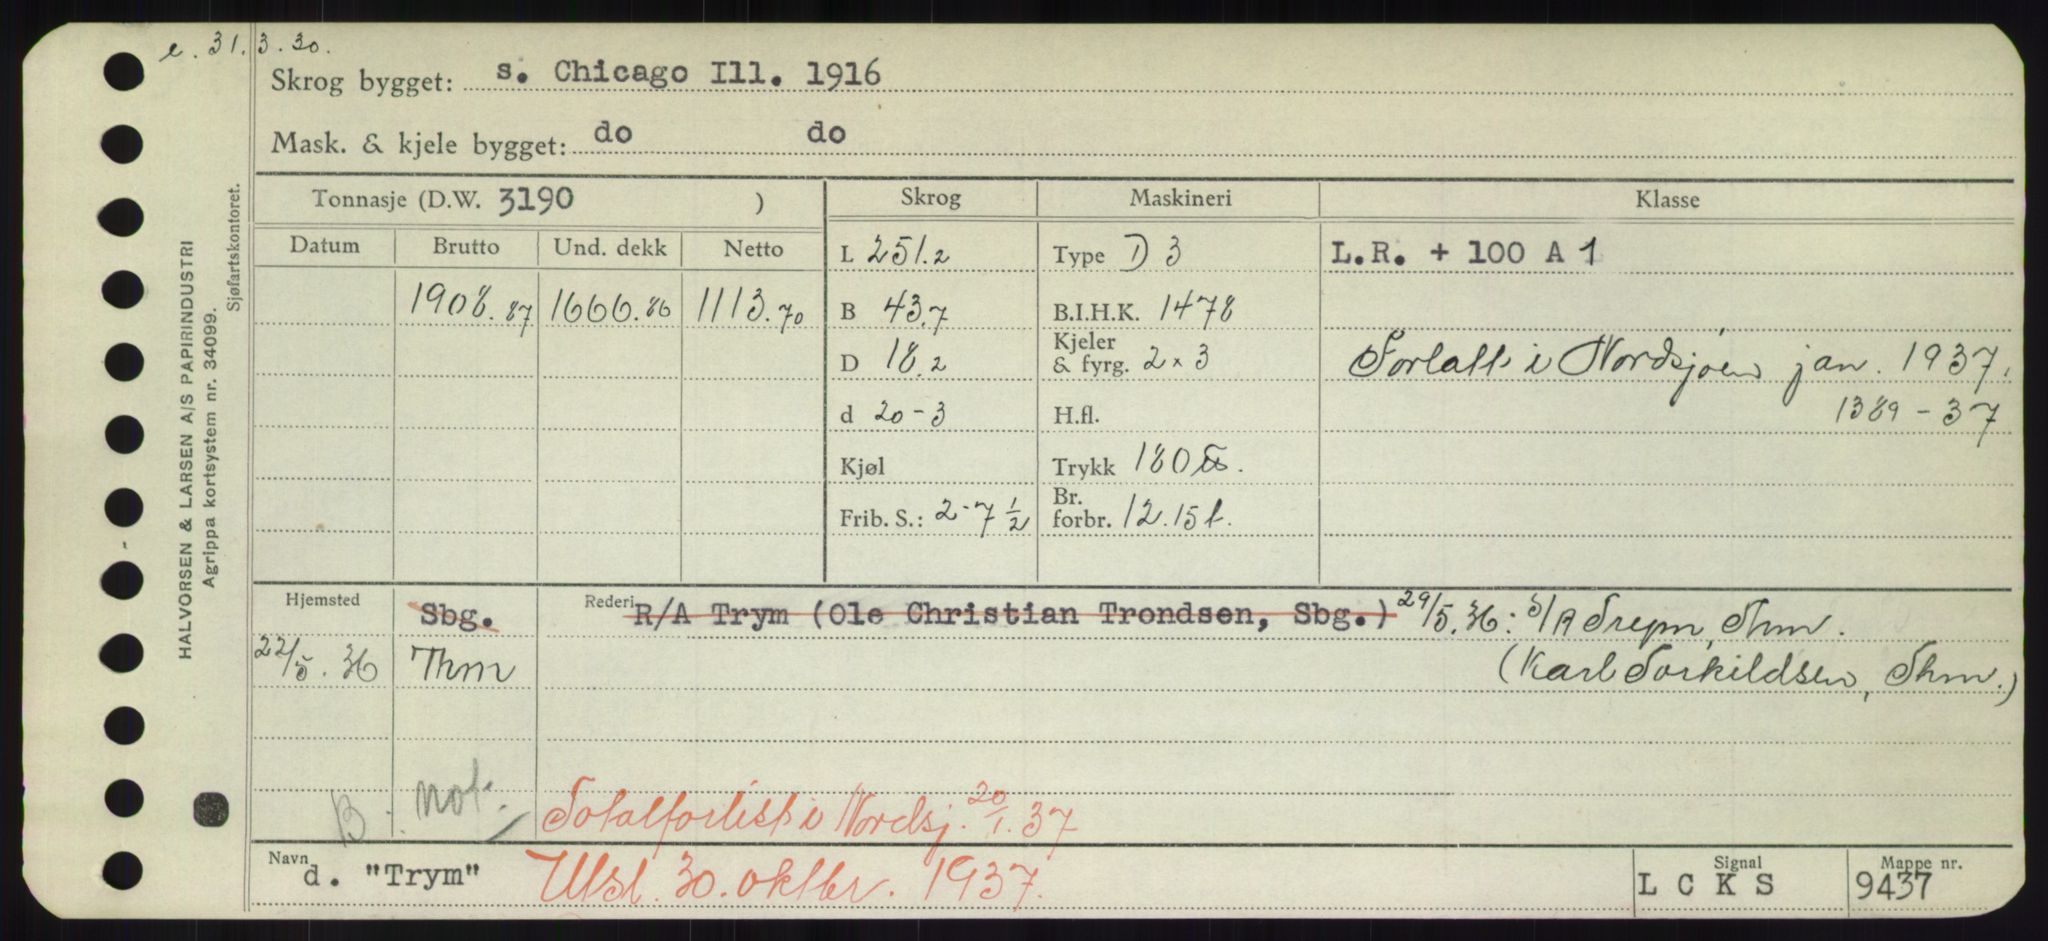 e. 31.3.30.
Skrog bygget: s. Chicago Ill. 1916
Mask. & kjele bygget: do do
HALVORSEN & LARSEN A/S PAPIRINDUSTRI
Agrippa kortsystem nr. 34099.
Sjøfartskontoret.
Tonnasje (D.W. 3190 ) Skrog Maskineri Klasse
Datum Brutto Und. dekk Netto L 251.2 Type D 3 L.R. + 100 A 1
1908.87 1666.86 1113.70 B 43.7 B.I.H.K. 1478
D 18.2 Kjeler & fyrg. 2x3 Forlatt i Nordsjøen jan. 1937.
d 20-3 H.fl. 1389-37
Kjøl Trykk 180 ℔.
Frib. S.: 2-7 1/2 Br. forbr. 12.15 t.
Hjemsted Sbg. Rederi R/A Trym (Ole Christian Trondsen, Sbg.) 29/5.36: S/A Trym, Thm.
22/5.36 Thm (Karl Torkildsen, Thm.)
B. not.
Totalforlist i Nordsj. 20/1.37
Navn d. "Trym" Utsl. 30. oktbr. 1937. Signal L C K S Mappe nr. 9437